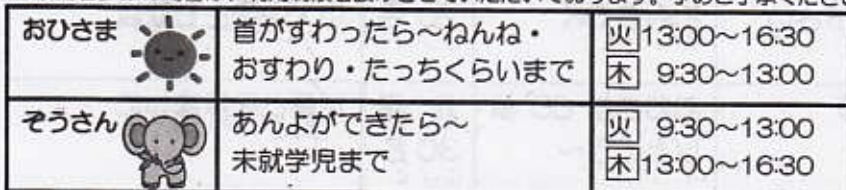 おひさま
首がすわったら～ねんね・
おすわり・たっちくらいまで
火 13:00～16:30
木 9:30～13:00
ぞうさん
あんよができたら～
未就学児まで
火 9:30～13:00
木 13:00～16:30